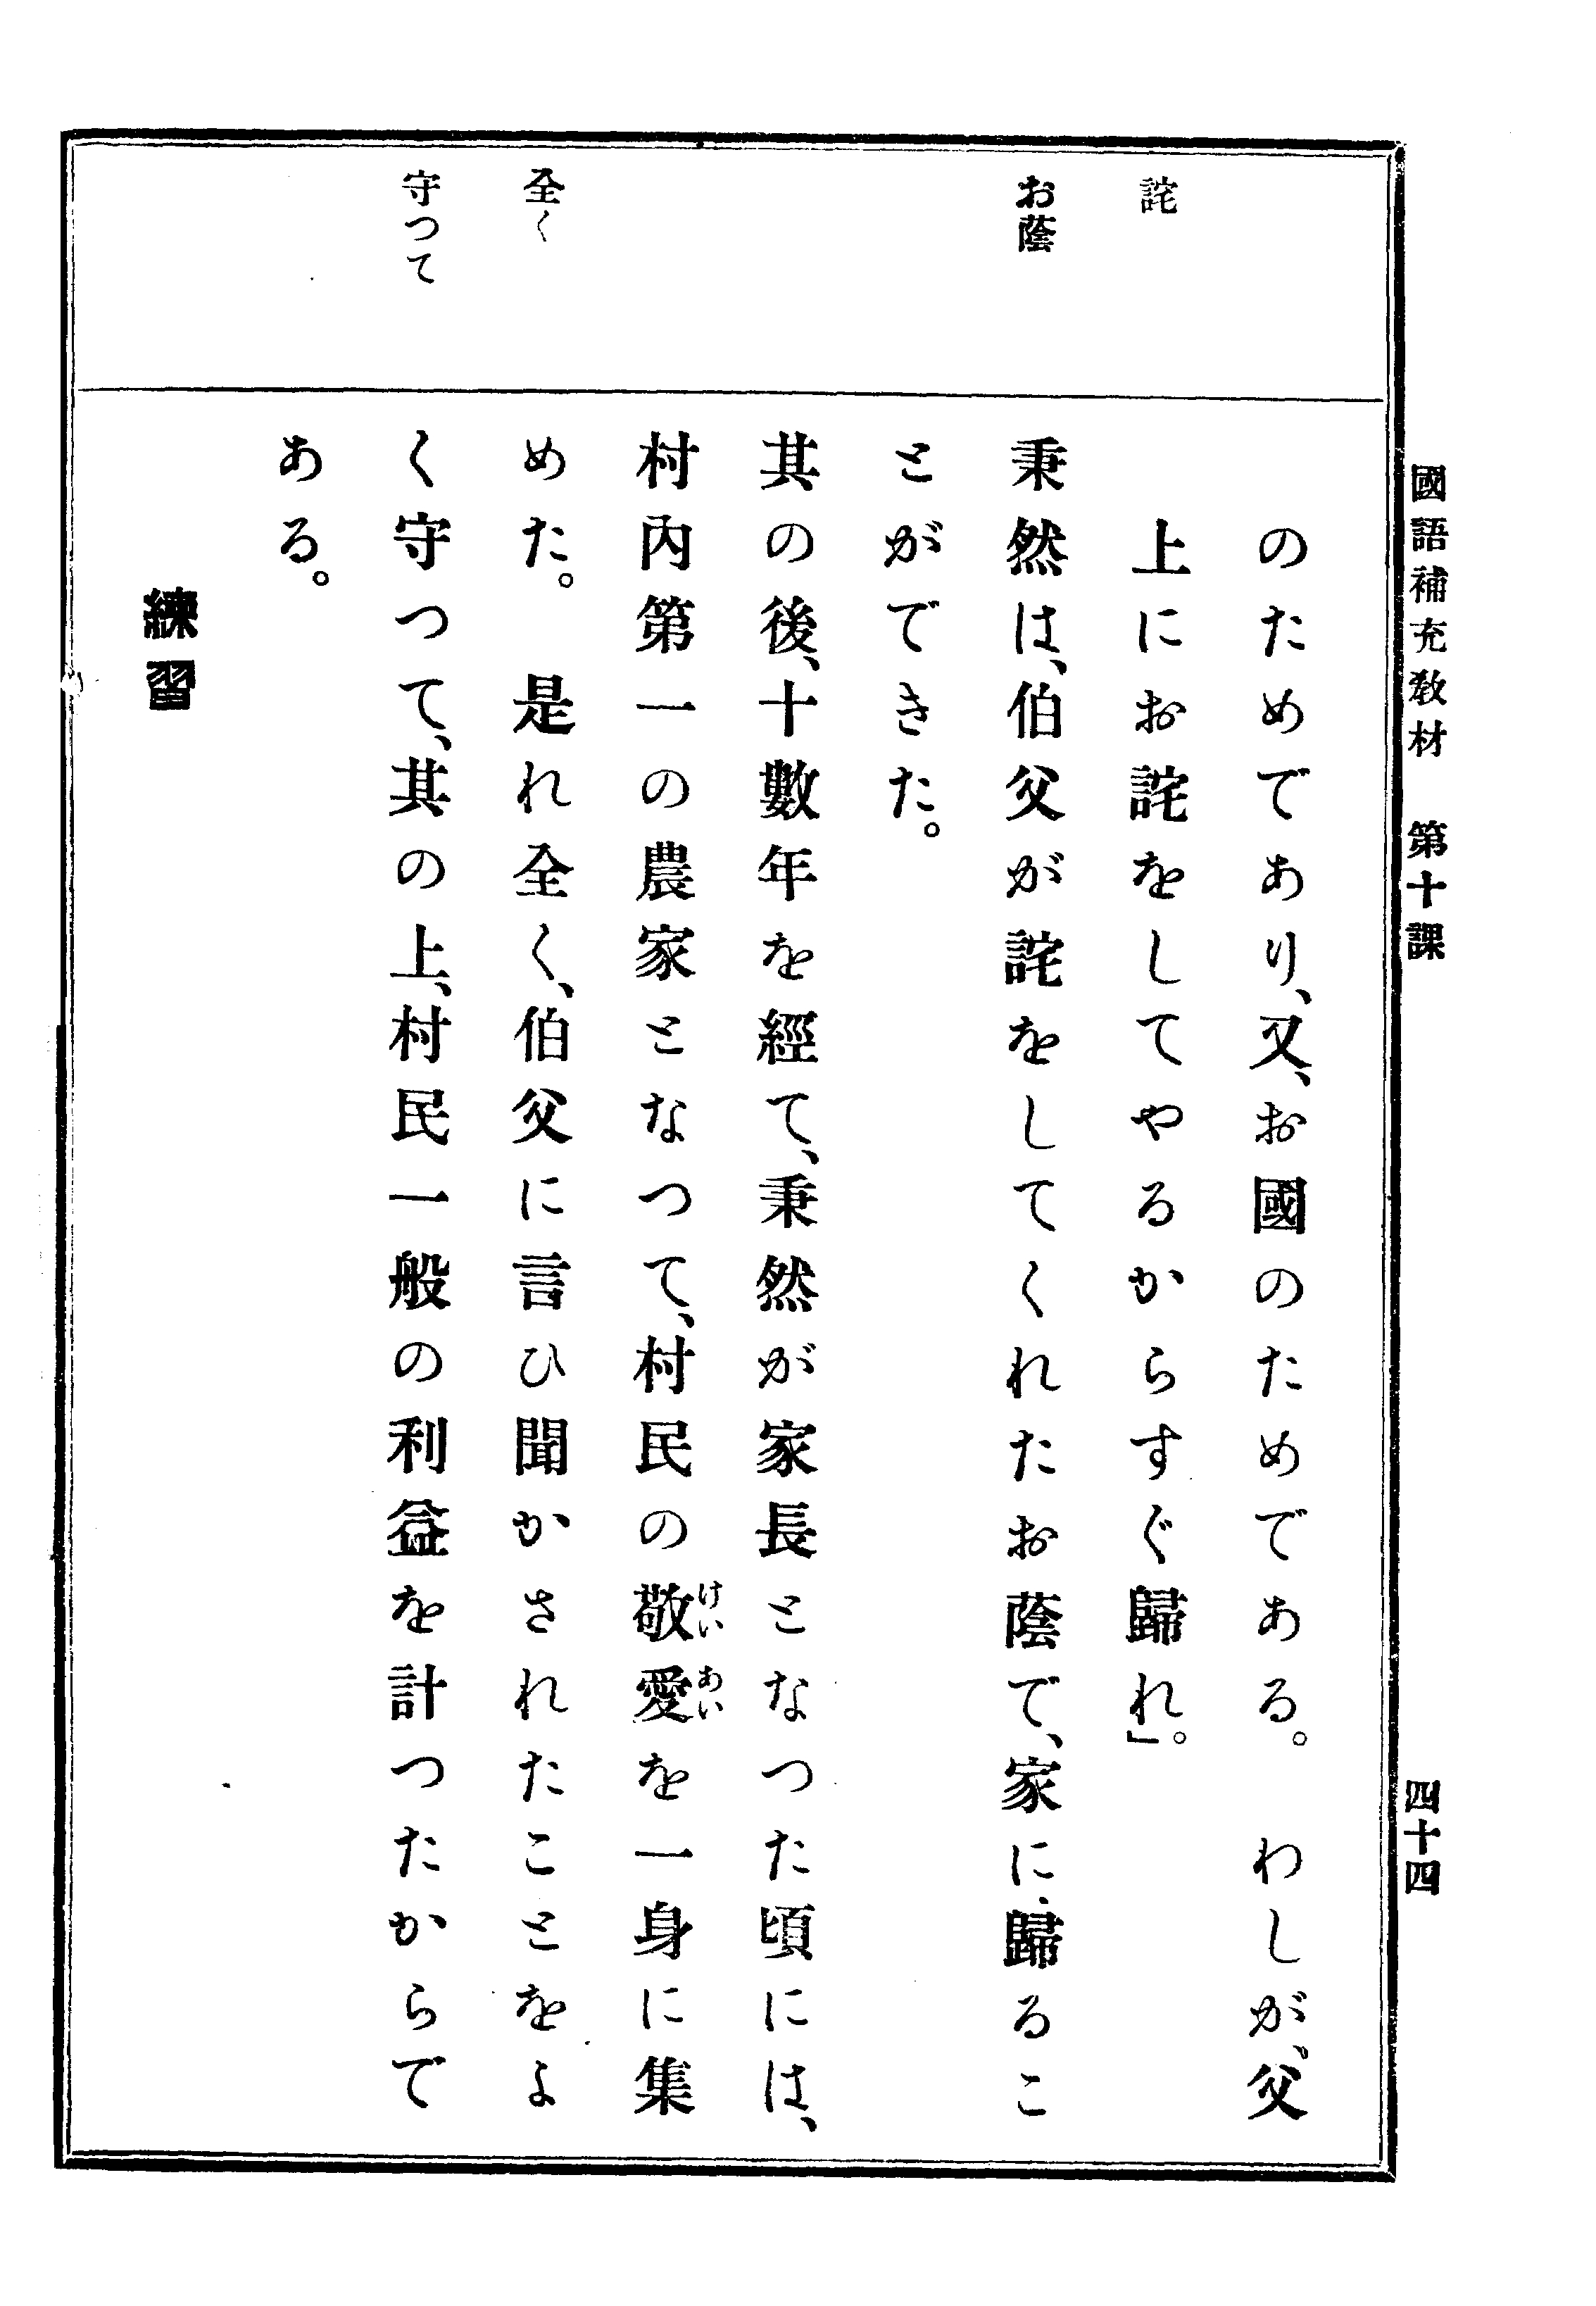 國語補充教材　第十課
四十四
詫
お蔭
全く
守つて
のためであり、又、お國のためである。　わしが、父
上にお詫をしてやるからすぐ歸れ」。
秉然は、伯父が詫をしてくれたお蔭で、家に歸るこ
とができた。
其の後、十數年を經て、秉然が家長となつた頃には、
村內第一の農家となつて、村民の敬愛を一身に集
けいあい
めた。　是れ全く、伯父に言ひ聞かされたことをよ
く守つて、其の上、村民一般の利益を計つたからで
ある。
練習